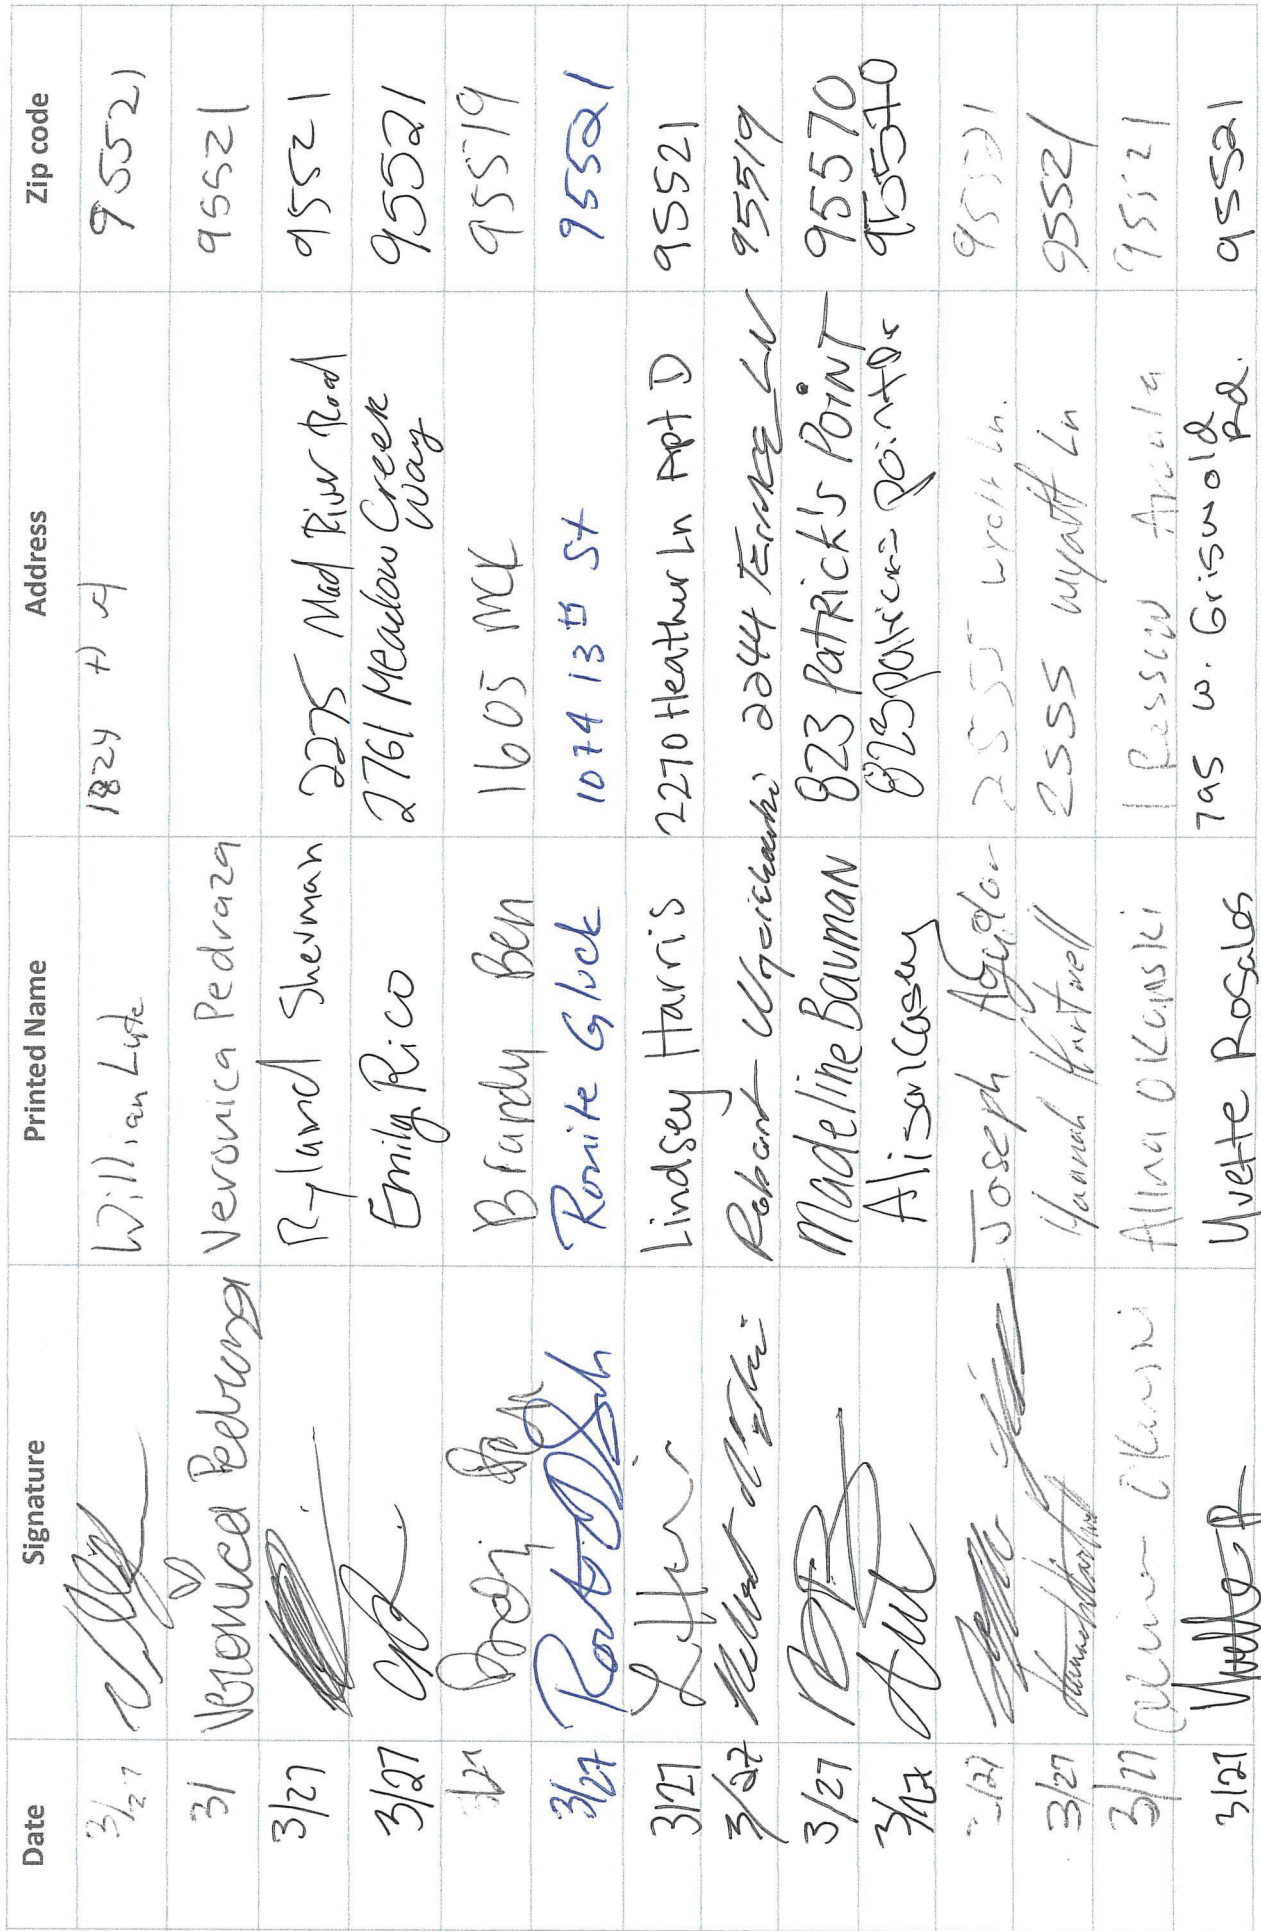 Date Signature Printed Name Address Zip code
3/27 William Lyte 1824 H 95521
3/ Veronica Pedraza Veronica Pedraza 95521
3/27 Ryland Sherman 2275 Mad River Road 95521
3/27 Emily Rico 2761 Meadow Creek Way 95521
3/27 Brandy Ben 1605 McK 95519
3/27 Ronite Gluck 1074 13th St 95521
3/27 Lindsey Harris 2270 Heather Ln Apt D 95521
3/27 Robert 2244 Terrace LN 95519
3/27 Madeline Bauman 823 Patrick's Point 95570
3/27 Alison Casey 823 Patricks Point Dr 95570
3/27 Joseph 2555 Ln. 95521
3/27 Hannah Hartwell 2555 Wyatt Ln 95521
3/27 Alina Okanski 1 Rossow Arcata 95521
3/27 Yvette R Yvette Rosales 795 W. Griswold Rd. 95521